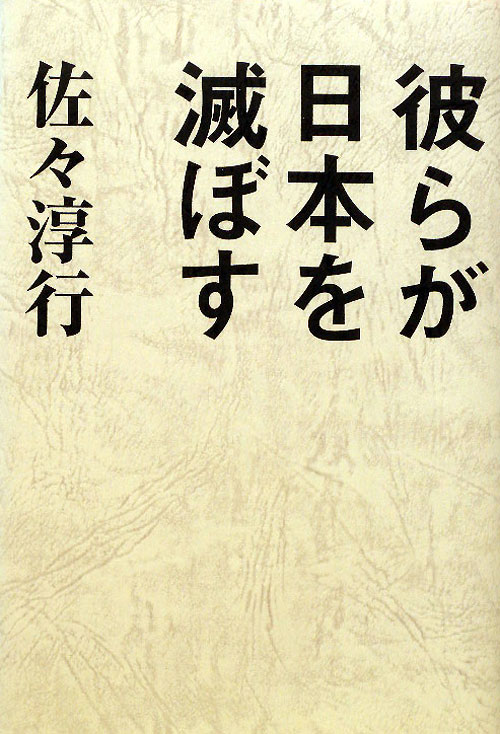 彼らが
日本を
滅ぼす
佐々淳行